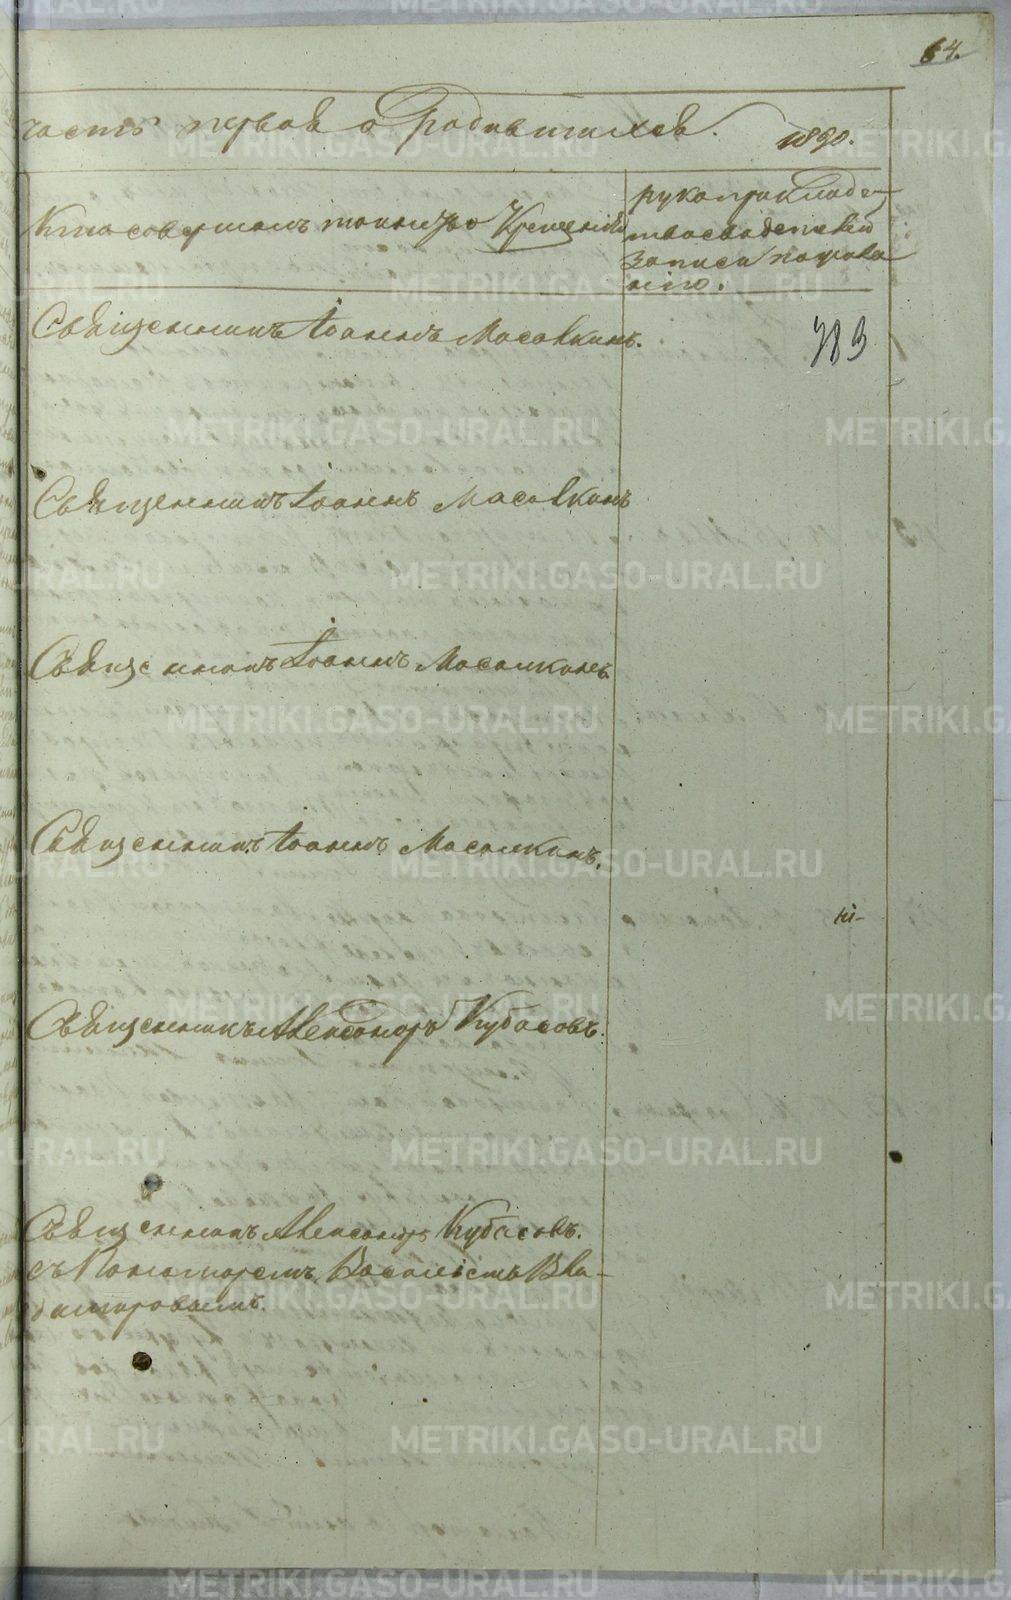 64.
часть первая о Родившихся. 1890.
Кто совершалъ таинство Крещенія
рукоприклад
тво свидетелей
записи по
нію.
Священникъ Іоаннъ Масалкинъ.
Священникъ Іоаннъ Масалкинъ
Священникъ Іоаннъ Масалкинъ
Священникъ Іоаннъ Масалкинъ.
Священникъ Александръ Кубасовъ.
Священникъ Александръ Кубасовъ.
съ Пономаремъ Василіемъ Вла-
димировымъ.
METRIKI.GASO-URAL.RU